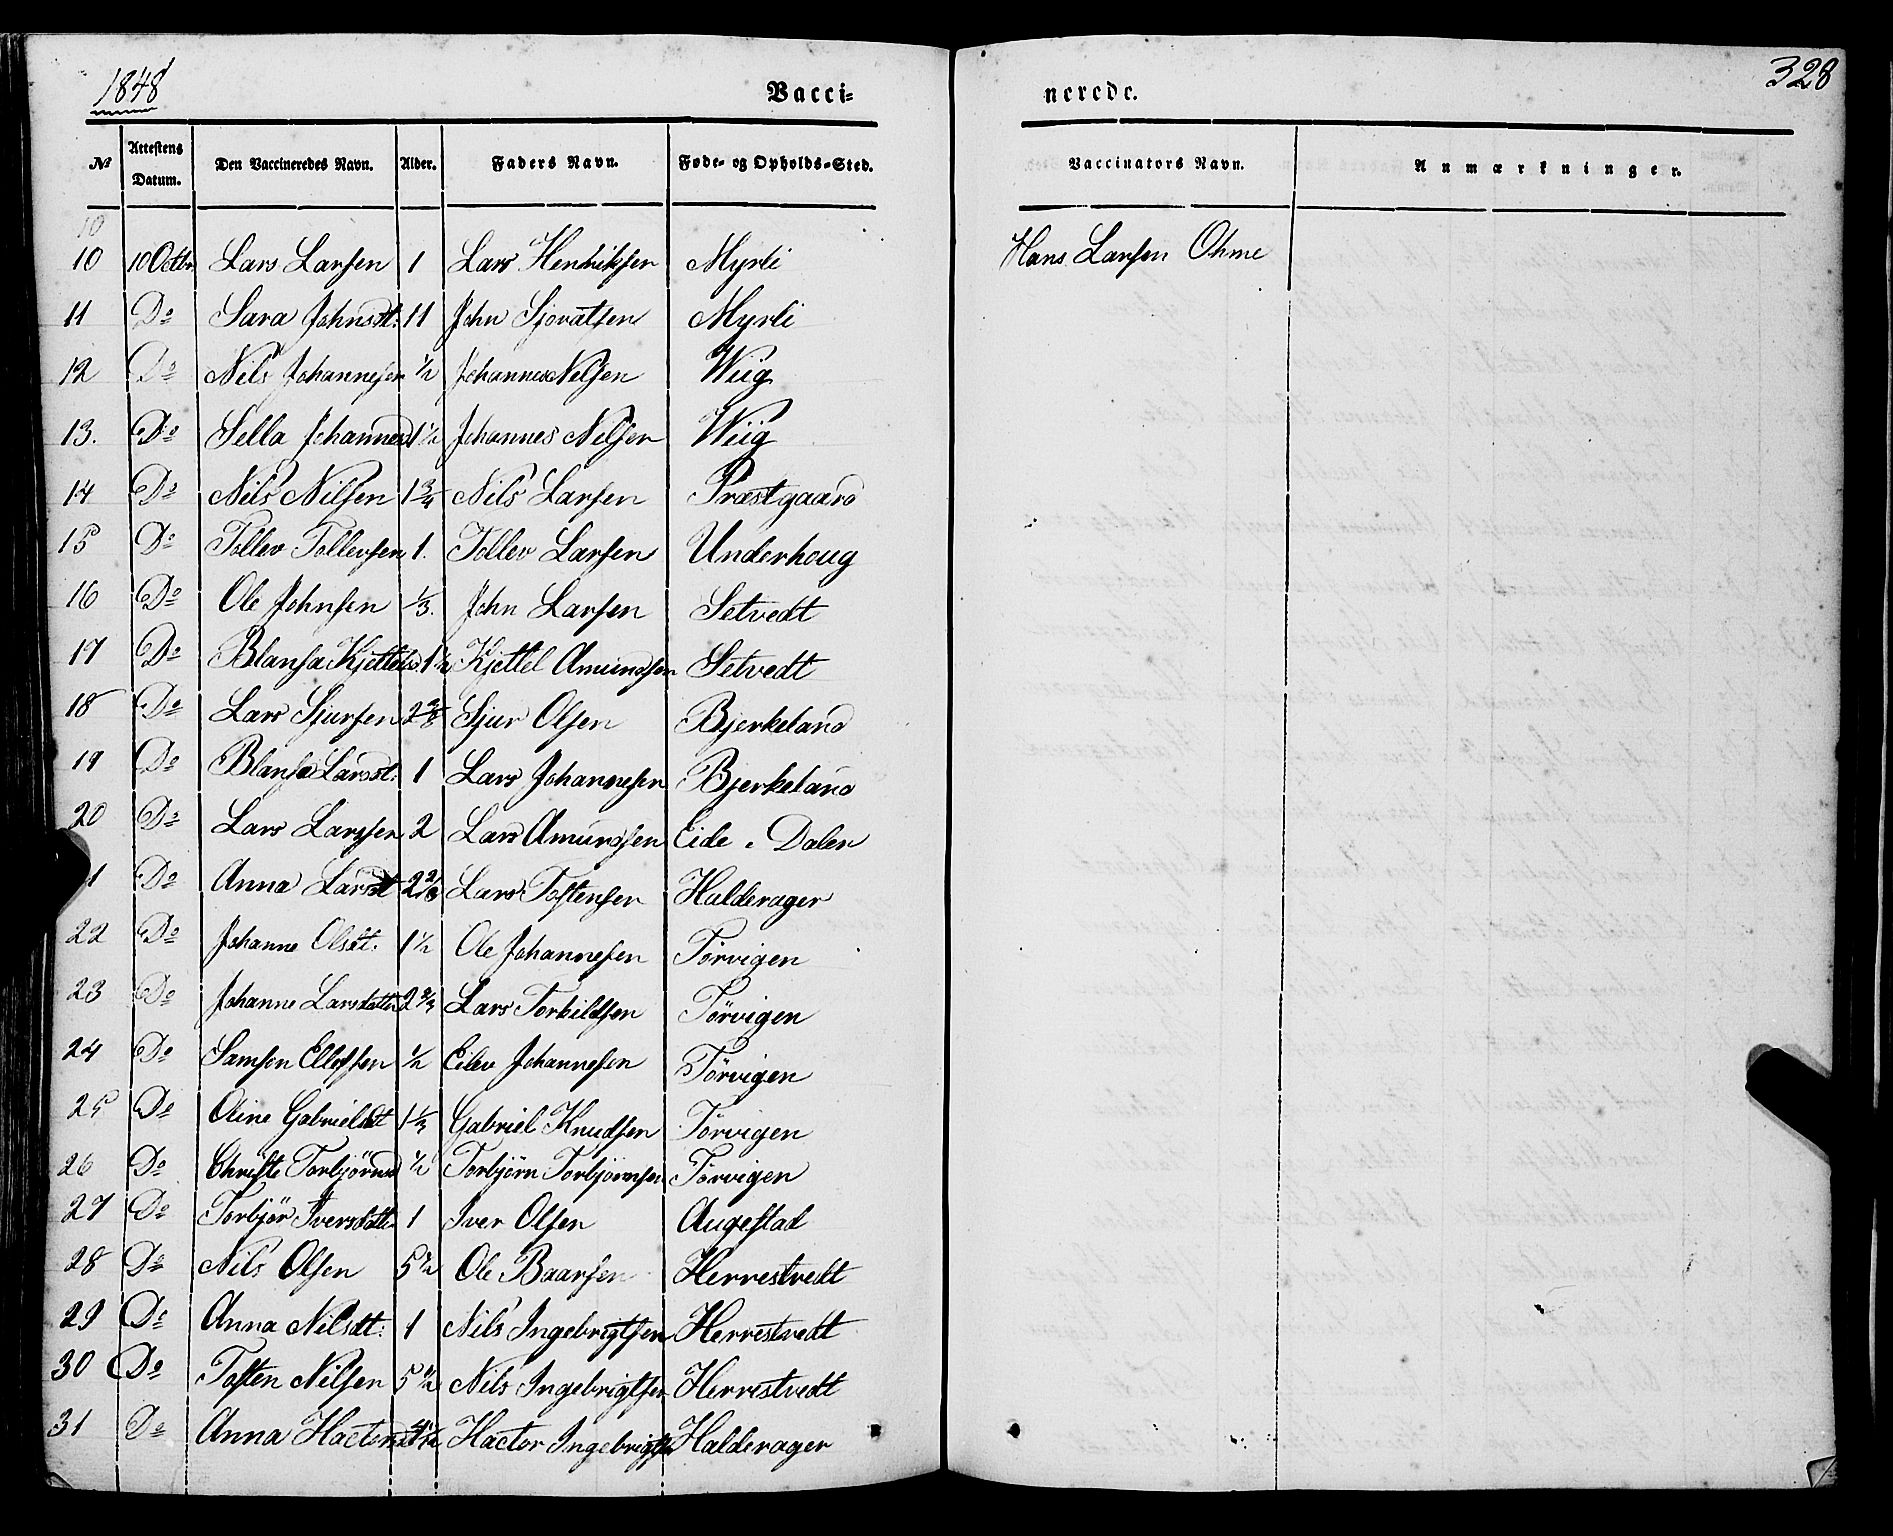 1848
Vacci-
nerede.
328
№ Attestens Datum. Den Vaccineredes Navn. Alder. Faders Navn. Føde- og Opholds-Sted. Vaccinators Navn. Anmærkninger.
10
10 10 Octbr Lars Larsen 1 Lars Henriksen Myrli Hans Larsen Ohme
11 Do Sara Johnsdt: 11 John Sjovatsen Myrli
12 Do Nils Johannesen ½ Johannes Nelsen Wiig
13. Do Sella Johannesd 1½ Johannes Nelsen Wiig
14 Do Nils Nilsen 1¾ Nils Larsen Præstgaard
15 Do Tollev Tollevsen 1. Tollev Larsen Underhoug
16 Do Ole Johnsen ⅓. John Larsen Setvedt
17 Do Blansa Kjettelsd 1½ Kjettel Amundsen Setvedt
18 Do Lars Sjursen 2⅔ Sjur Olsen Bjerkeland
19 Do Blansa Larsdt: 1 Lars Johannesen Bjerkeland
20 Do Lars Larssen 2 Lars Amundsen Eide i Dalen
1 Do Anna Larsdt 2⅔ Lars Tostensen Halderager
22 Do Johanne Olsdt: 1½ Ole Johannesen Tørvigen
23 Do Johanne Larsdatter 2¾ Lars Torkildsen Tørvigen
24 Do Samson Ellefsen ½ Eilev Johannesen Tørvigen
25 Do Oline Gabrielsdt 1⅓ Gabriel Knudsen Tørvigen
26 Do Christe Torbjørnsd ½ Torbjørn Torbjørnsen Tørvigen
27 Do Torbjør Iversdatter 1 Iver Olsen Augestad
28 Do Nils Olsen 5½ Ole Baarsen Herrestvedt
29 Do Anna Nilsdt: 1 Nils Ingebrigtsen Herrestvedt
30 Do Tosten Nilsen 5½ Nils Ingebrigtsen Herrestvedt
31 Do Anna Hactorsd 4½ Hactor Ingebrigtsen Halderager